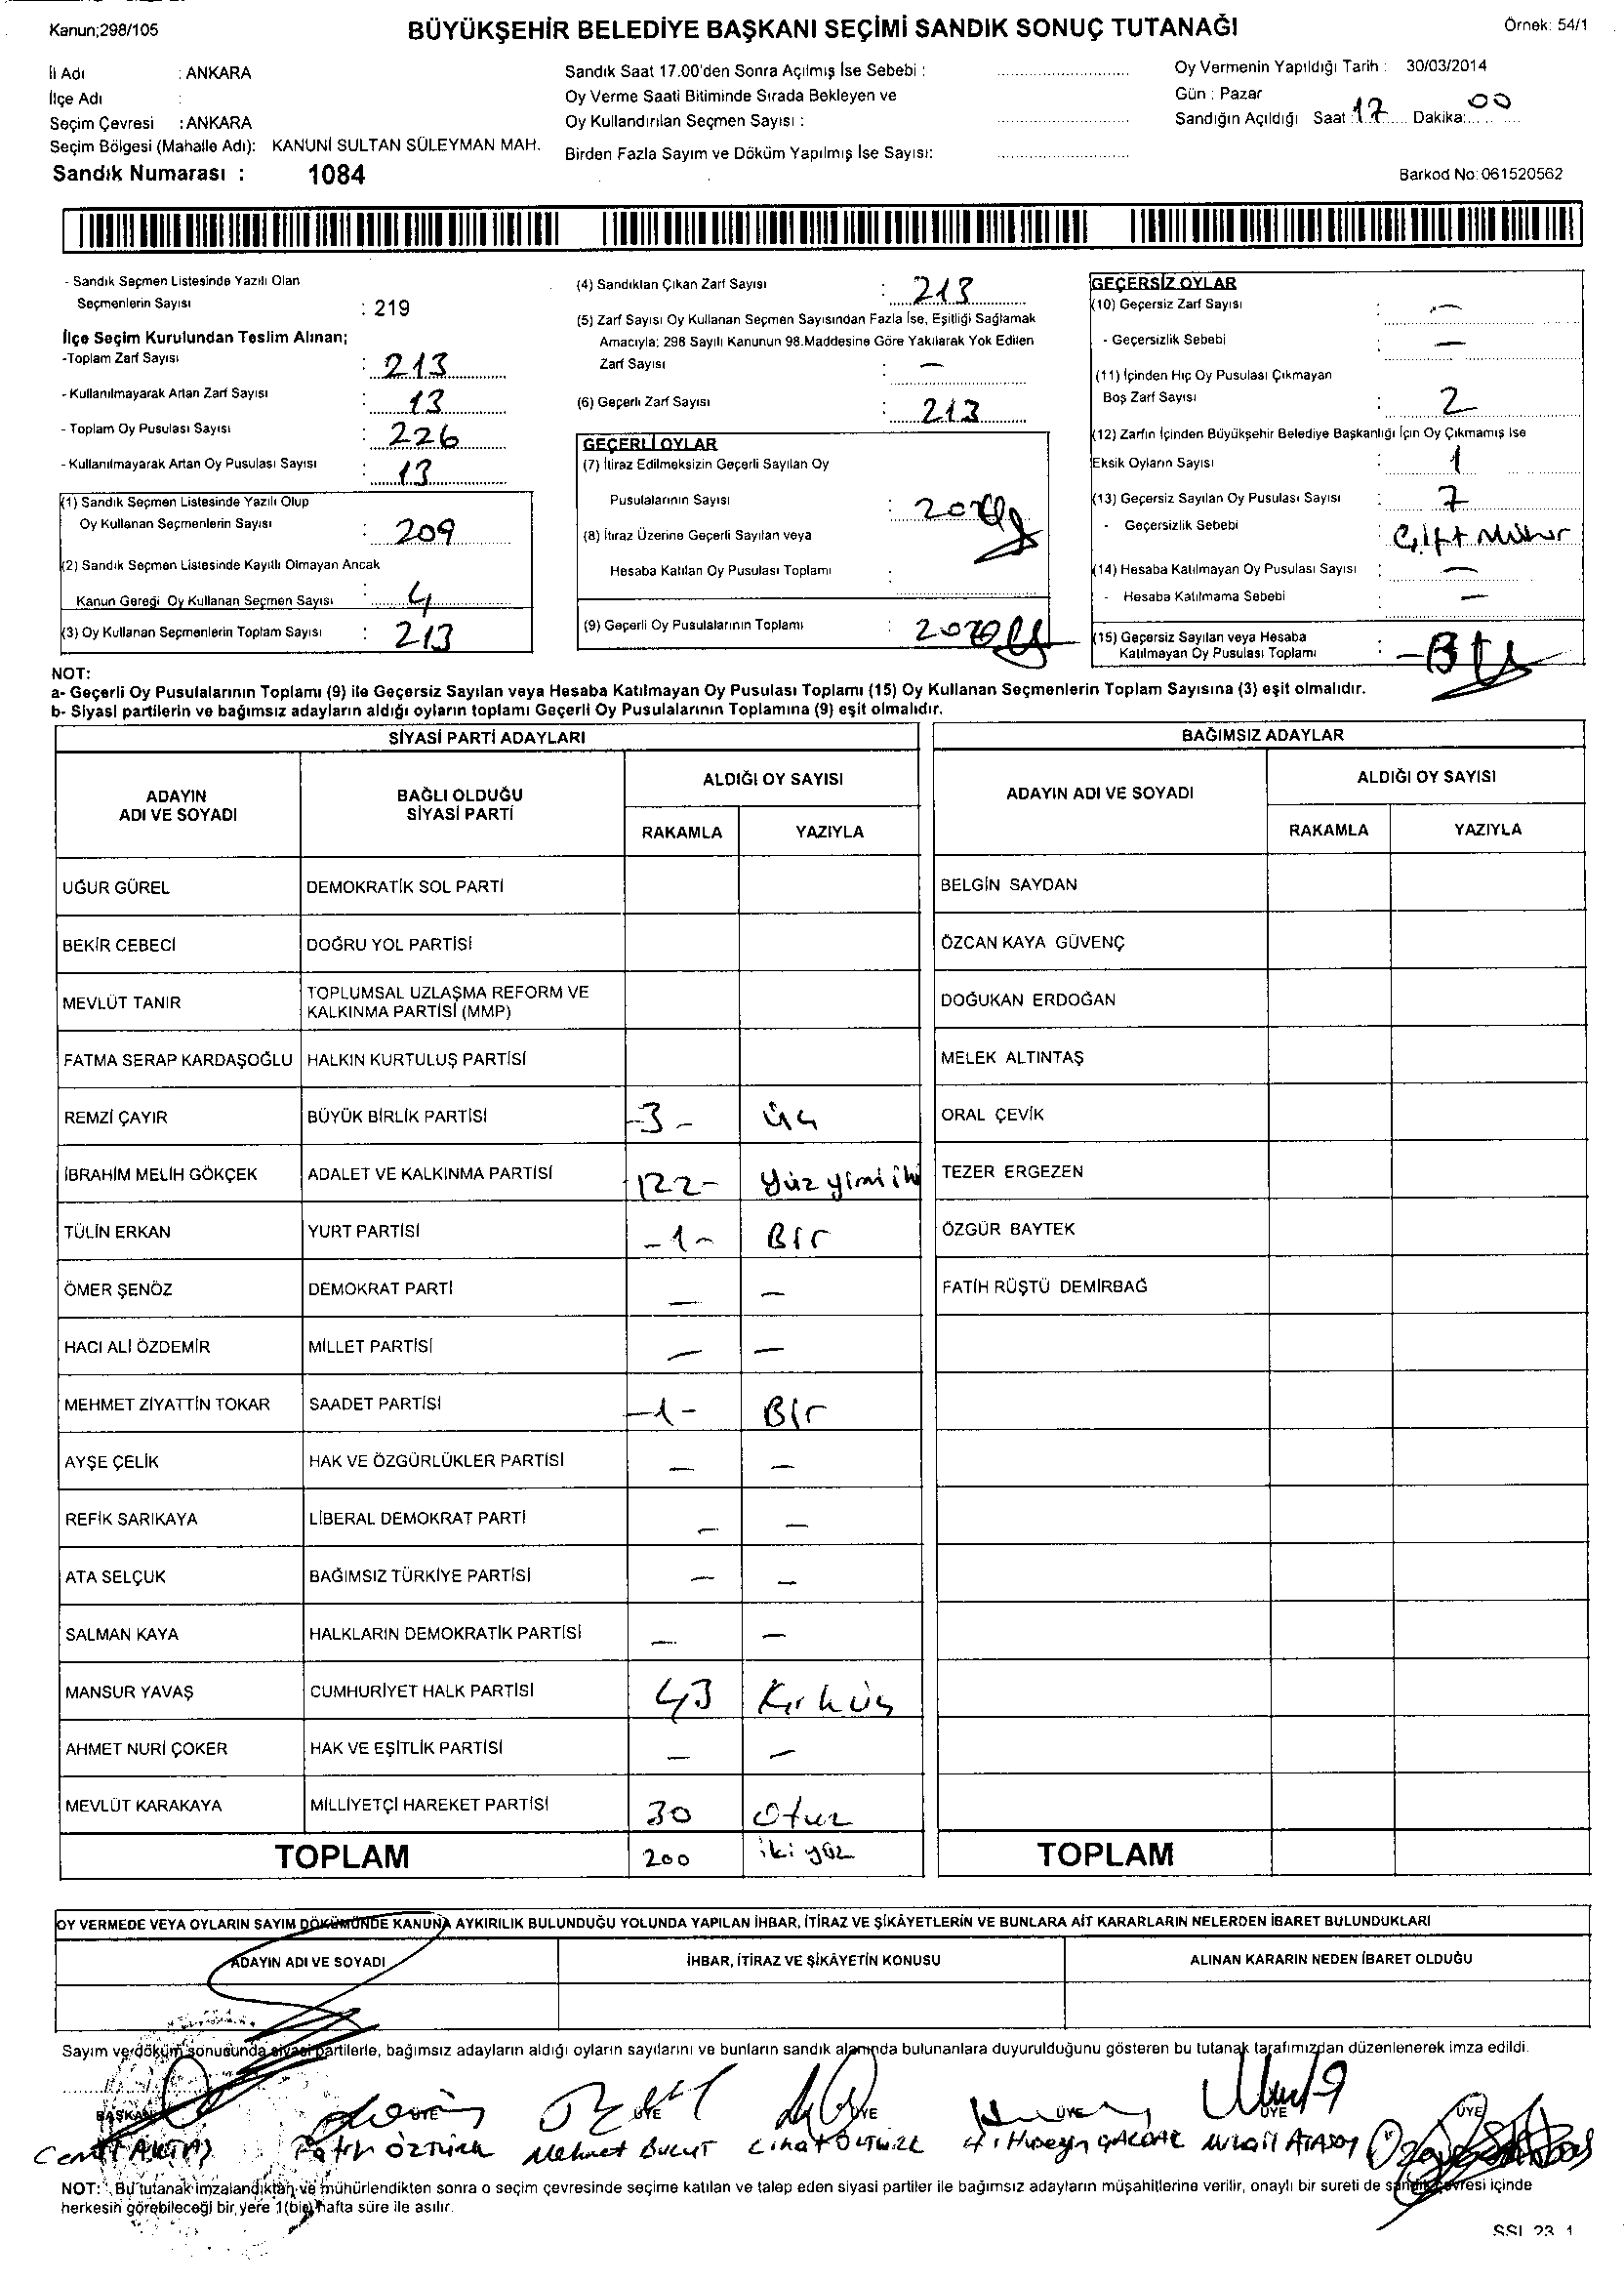 Kanun;298/105
BÜYÜKŞEHİR BELEDİYE BAŞKANI SEÇİMİ SANDIK SONUÇ TUTANAĞI
Örnek: 54/1
İl Adı : ANKARA
İlçe Adı :
Seçim Çevresi : ANKARA
Seçim Bölgesi (Mahalle Adı): KANUNİ SULTAN SÜLEYMAN MAH.
Sandık Numarası : 1084
Sandık Saat 17.00'den Sonra Açılmış İse Sebebi :
Oy Verme Saati Bitiminde Sırada Bekleyen ve
Oy Kullandırılan Seçmen Sayısı :
Birden Fazla Sayım ve Döküm Yapılmış İse Sayısı:
Oy Vermenin Yapıldığı Tarih : 30/03/2014
Gün : Pazar
Sandığın Açıldığı Saat : 17 Dakika: 00
Barkod No: 061520562
- Sandık Seçmen Listesinde Yazılı Olan
Seçmenlerin Sayısı : 219
İlçe Seçim Kurulundan Teslim Alınan;
-Toplam Zarf Sayısı : 213
- Kullanılmayarak Artan Zarf Sayısı : 13
- Toplam Oy Pusulası Sayısı : 226
- Kullanılmayarak Artan Oy Pusulası Sayısı : 13
(1) Sandık Seçmen Listesinde Yazılı Olup
Oy Kullanan Seçmenlerin Sayısı : 209
(2) Sandık Seçmen Listesinde Kayıtlı Olmayan Ancak
Kanun Gereği Oy Kullanan Seçmen Sayısı : 4
(3) Oy Kullanan Seçmenlerin Toplam Sayısı : 213
(4) Sandıktan Çıkan Zarf Sayısı : 213
(5) Zarf Sayısı Oy Kullanan Seçmen Sayısından Fazla İse, Eşitliği Sağlamak
Amacıyla; 298 Sayılı Kanunun 98.Maddesine Göre Yakılarak Yok Edilen
Zarf Sayısı : —
(6) Geçerli Zarf Sayısı : 213
GEÇERLİ OYLAR
(7) İtiraz Edilmeksizin Geçerli Sayılan Oy
Pusulalarının Sayısı :
(8) İtiraz Üzerine Geçerli Sayılan veya
Hesaba Katılan Oy Pusulası Toplamı :
(9) Geçerli Oy Pusulalarının Toplamı :
GEÇERSİZ OYLAR
(10) Geçersiz Zarf Sayısı : —
- Geçersizlik Sebebi : —
(11) İçinden Hiç Oy Pusulası Çıkmayan
Boş Zarf Sayısı : 2
(12) Zarfın İçinden Büyükşehir Belediye Başkanlığı İçin Oy Çıkmamış İse
Eksik Oyların Sayısı : 1
(13) Geçersiz Sayılan Oy Pusulası Sayısı : 7
- Geçersizlik Sebebi : Çift Mühür
(14) Hesaba Katılmayan Oy Pusulası Sayısı : —
- Hesaba Katılmama Sebebi : —
(15) Geçersiz Sayılan veya Hesaba
Katılmayan Oy Pusulası Toplamı :
NOT:
a- Geçerli Oy Pusulalarının Toplamı (9) ile Geçersiz Sayılan veya Hesaba Katılmayan Oy Pusulası Toplamı (15) Oy Kullanan Seçmenlerin Toplam Sayısına (3) eşit olmalıdır.
b- Siyasi partilerin ve bağımsız adayların aldığı oyların toplamı Geçerli Oy Pusulalarının Toplamına (9) eşit olmalıdır.
SİYASİ PARTİ ADAYLARI
ADAYIN ADI VE SOYADI
BAĞLI OLDUĞU SİYASİ PARTİ
ALDIĞI OY SAYISI
RAKAMLA YAZIYLA
UĞUR GÜREL DEMOKRATİK SOL PARTİ
BEKİR CEBECİ DOĞRU YOL PARTİSİ
MEVLÜT TANIR TOPLUMSAL UZLAŞMA REFORM VE
KALKINMA PARTİSİ (MMP)
FATMA SERAP KARDAŞOĞLU HALKIN KURTULUŞ PARTİSİ
REMZİ ÇAYIR BÜYÜK BİRLİK PARTİSİ -3- üç
İBRAHİM MELİH GÖKÇEK ADALET VE KALKINMA PARTİSİ -122- Yüz yimi iki
TÜLİN ERKAN YURT PARTİSİ -1- Bir
ÖMER ŞENÖZ DEMOKRAT PARTİ — —
HACI ALİ ÖZDEMİR MİLLET PARTİSİ — —
MEHMET ZİYATTİN TOKAR SAADET PARTİSİ -1- Bir
AYŞE ÇELİK HAK VE ÖZGÜRLÜKLER PARTİSİ — —
REFİK SARIKAYA LİBERAL DEMOKRAT PARTİ — —
ATA SELÇUK BAĞIMSIZ TÜRKİYE PARTİSİ — —
SALMAN KAYA HALKLARIN DEMOKRATİK PARTİSİ — —
MANSUR YAVAŞ CUMHURİYET HALK PARTİSİ 43 Kırküç
AHMET NURİ ÇOKER HAK VE EŞİTLİK PARTİSİ — —
MEVLÜT KARAKAYA MİLLİYETÇİ HAREKET PARTİSİ 30 Otuz
TOPLAM 200 iki yüz
BAĞIMSIZ ADAYLAR
ADAYIN ADI VE SOYADI
ALDIĞI OY SAYISI
RAKAMLA YAZIYLA
BELGİN SAYDAN
ÖZCAN KAYA GÜVENÇ
DOĞUKAN ERDOĞAN
MELEK ALTINTAŞ
ORAL ÇEVİK
TEZER ERGEZEN
ÖZGÜR BAYTEK
FATİH RÜŞTÜ DEMİRBAĞ
TOPLAM
OY VERMEDE VEYA OYLARIN SAYIM DÖKÜMÜNDE KANUNA AYKIRILIK BULUNDUĞU YOLUNDA YAPILAN İHBAR, İTİRAZ VE ŞİKÂYETLERİN VE BUNLARA AİT KARARLARIN NELERDEN İBARET BULUNDUKLARI
ADAYIN ADI VE SOYADI İHBAR, İTİRAZ VE ŞİKÂYETİN KONUSU ALINAN KARARIN NEDEN İBARET OLDUĞU
Sayım ve döküm sonusunda siyasi partilerle, bağımsız adayların aldığı oyların sayılarını ve bunların sandık alanında bulunanlara duyurulduğunu gösteren bu tutanak tarafımızdan düzenlenerek imza edildi.
BAŞKAN ÜYE ÜYE ÜYE ÜYE ÜYE ÜYE
Fatih ÖZTÜRK Mehmet BULUT
NOT: Bu tutanak imzalandıktan ve mühürlendikten sonra o seçim çevresinde seçime katılan ve talep eden siyasi partiler ile bağımsız adayların müşahitlerine verilir, onaylı bir sureti de sandık çevresi içinde
herkesin görebileceği bir yere 1(bir) hafta süre ile asılır.